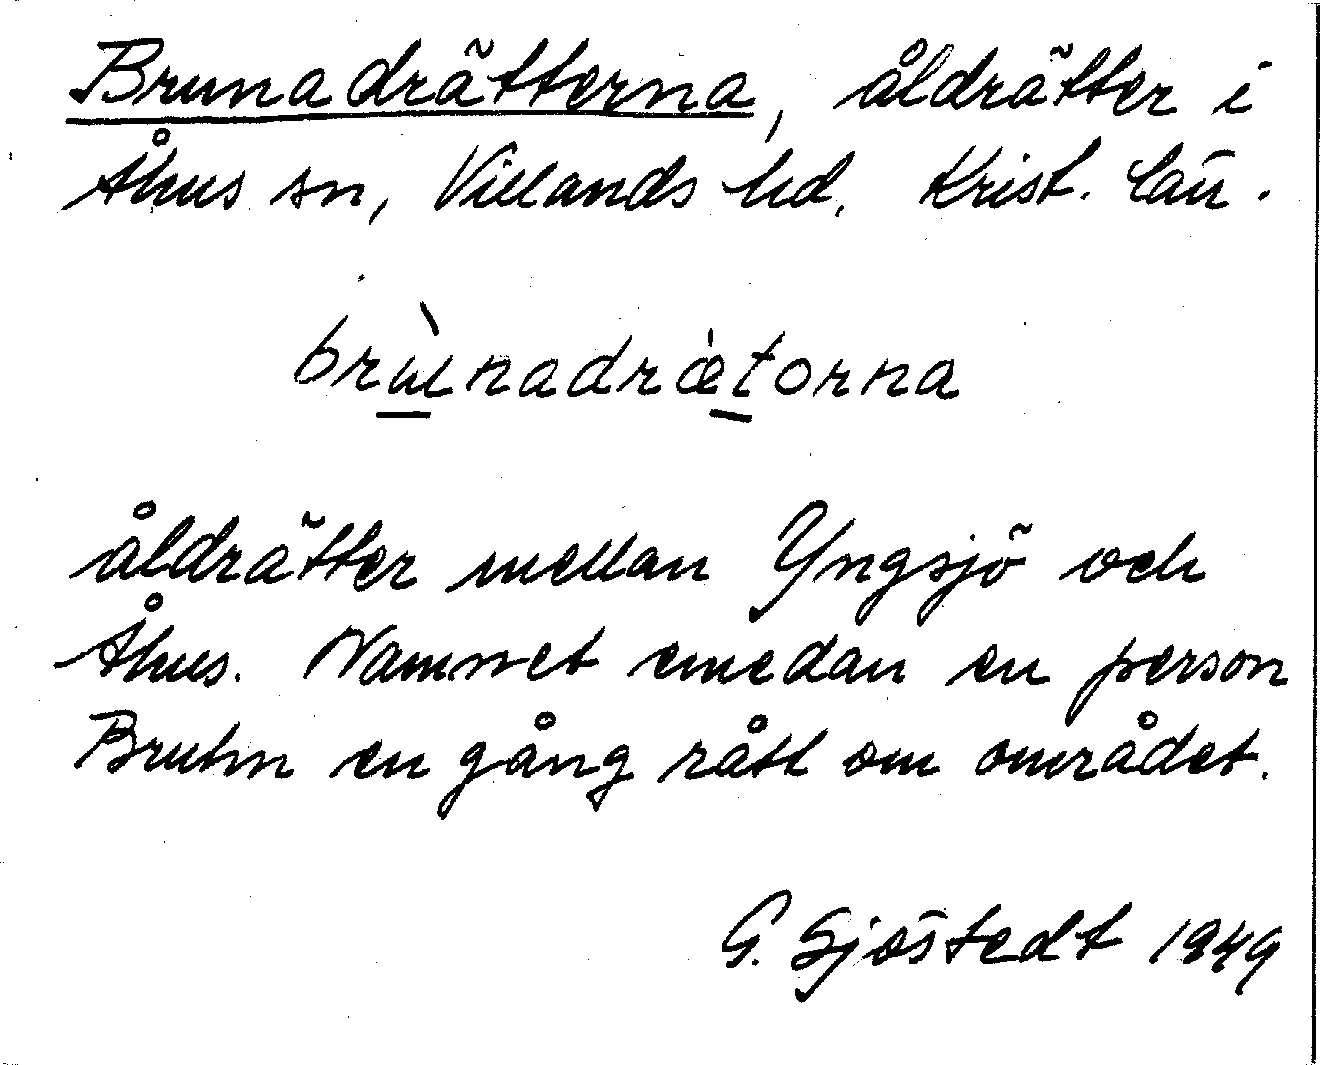 Brunadrätterna, åldrätter i
Åhus sn, Villands hd, Krist. län.
brùnadrǽtorna
åldrätter mellan Yngsjö och
Åhus. Namnet emedan en person
Bruhn en gång rått om området.
G. Sjöstedt 1949